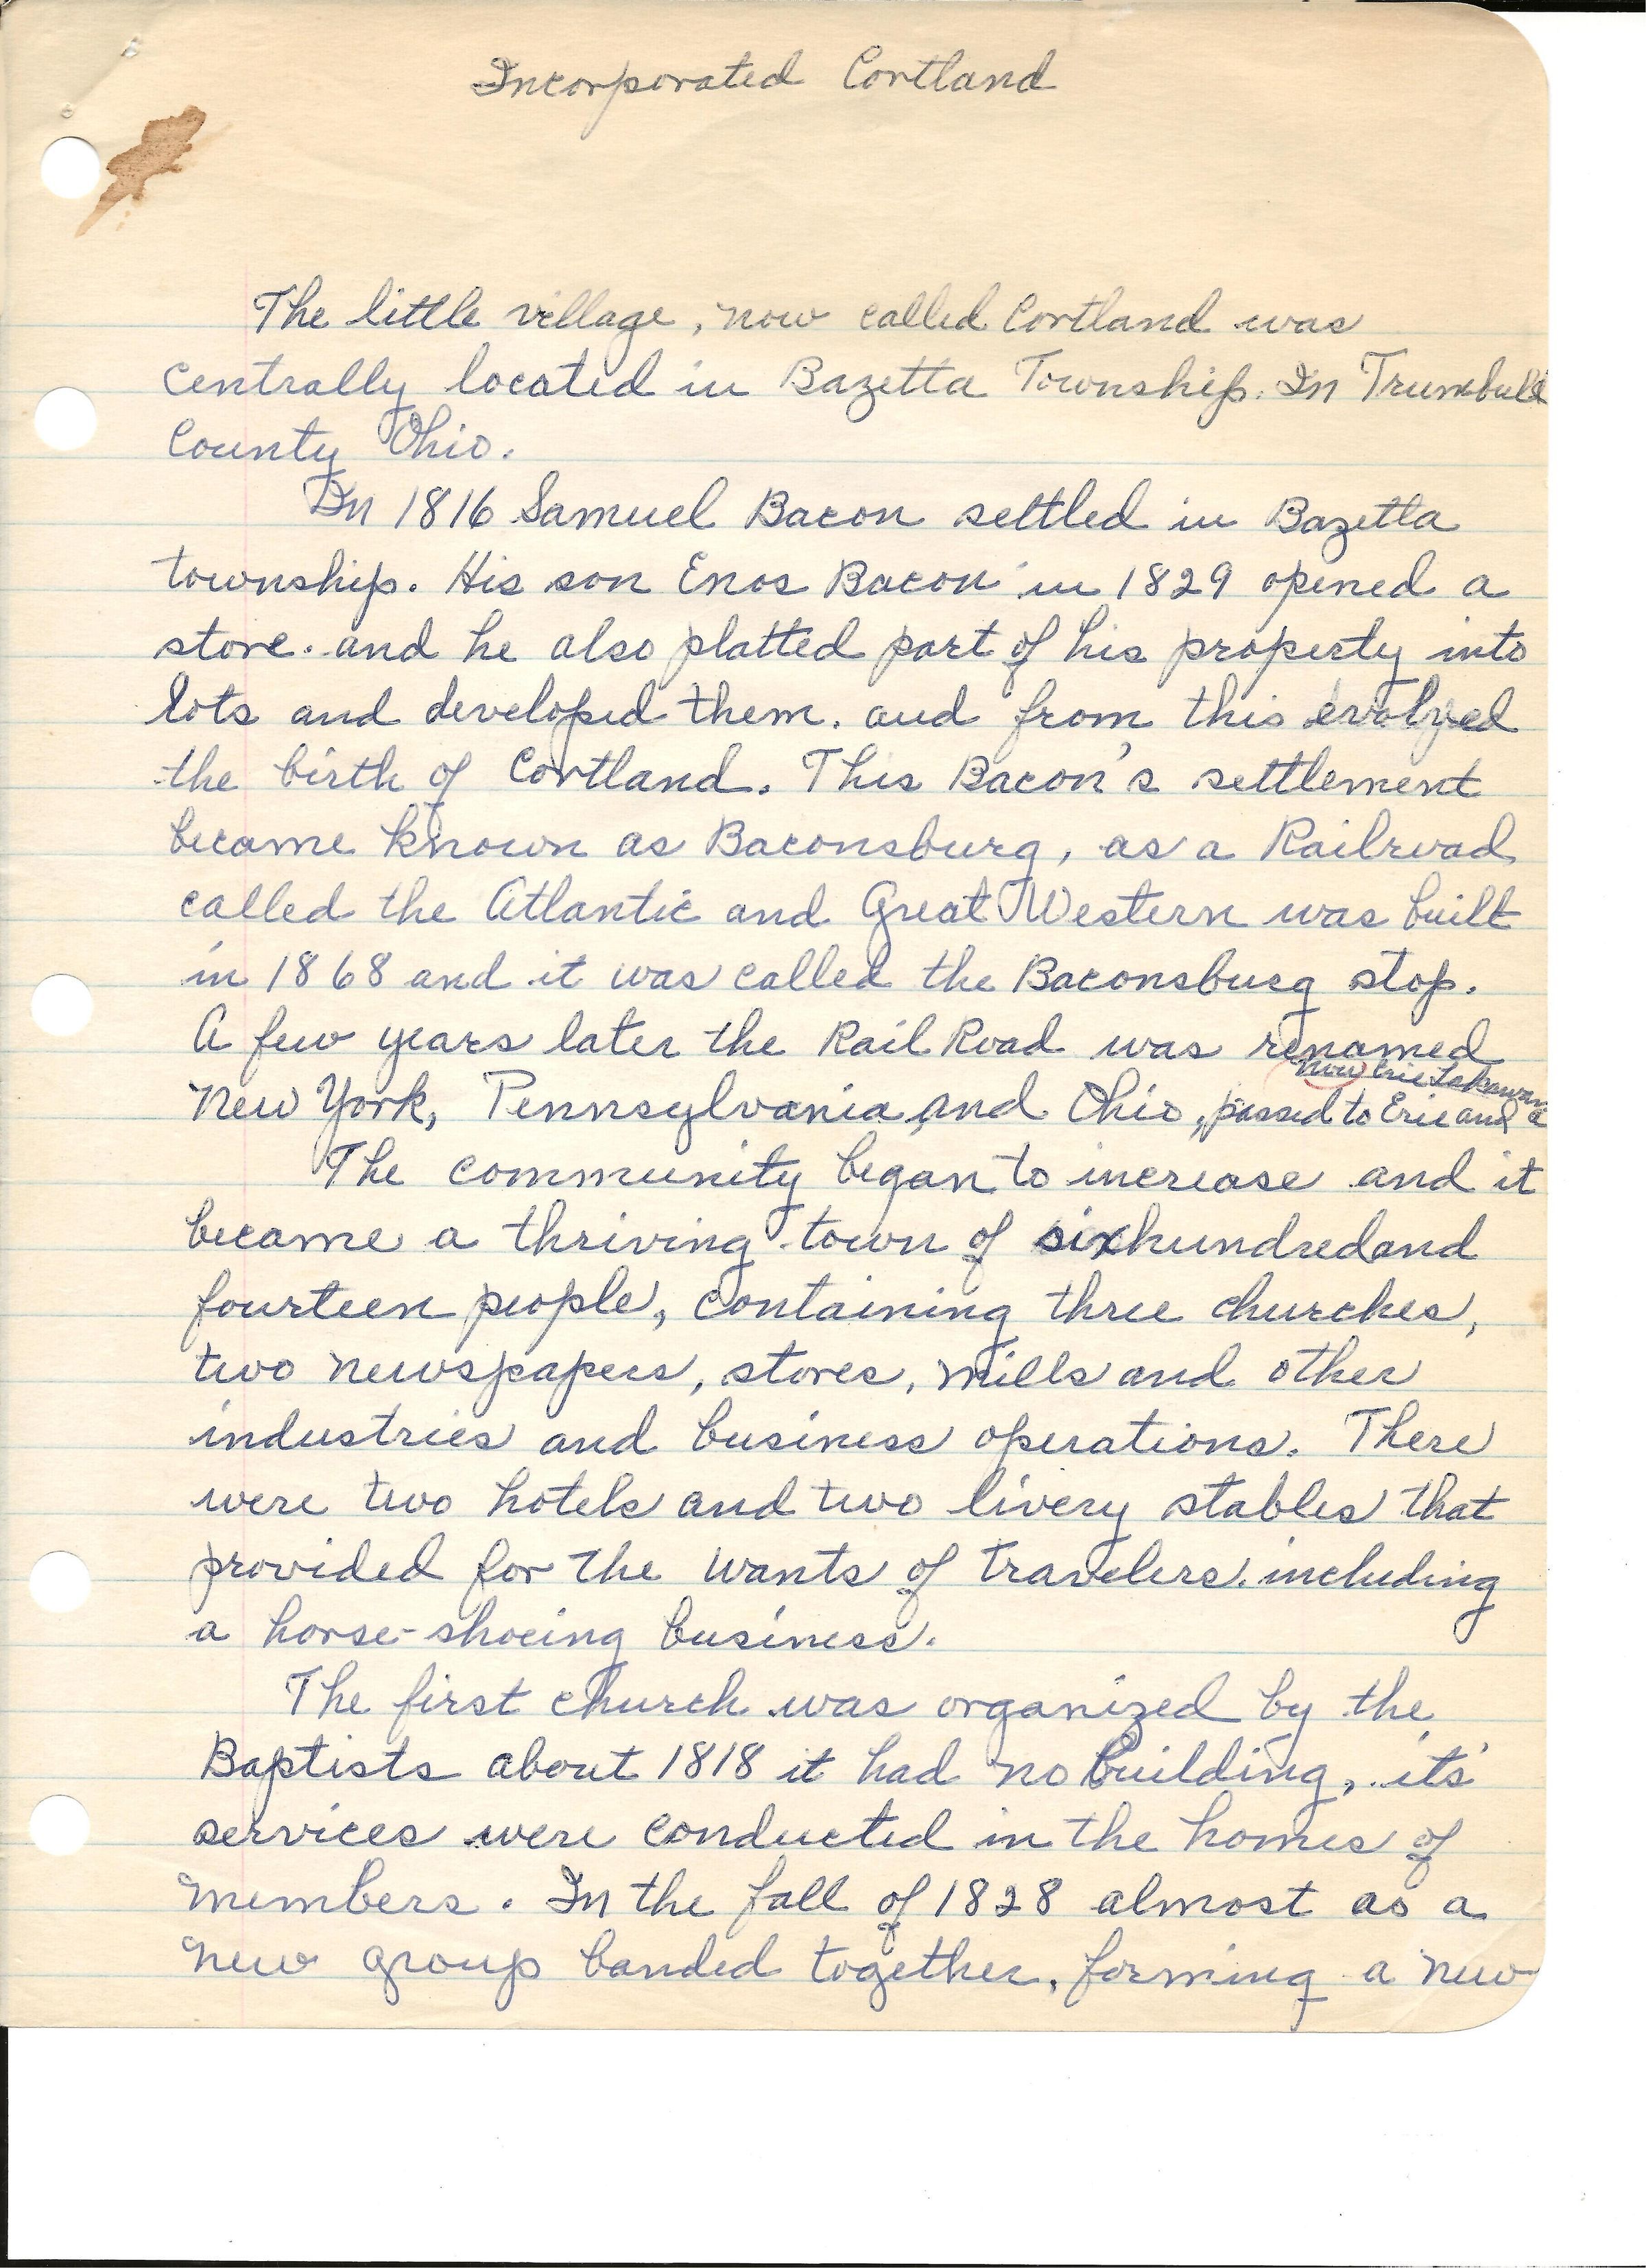 Incorporated Cortland
The little village, now called Cortland was
centrally located in Bazetta Township. In Trumbull
County Ohio.
In 1816 Samuel Bacon settled in Bazetta
township. His son Enos Bacon in 1829 opened a
store. and he also platted part of his property into
lots and developed them. and from this evolved
the birth of Cortland. This Bacon's settlement
became known as Baconsburg, as a Railroad
called the Atlantic and Great Western was built
in 1868 and it was called the Baconsburg stop.
A few years later the Rail Road was renamed
now Erie Lakawana
New York, Pennsylvania, and Ohio, passed to Erie and
The community began to increase and it
became a thriving town of sixhundredand
fourteen people, containing three churches,
two newspapers, stores, mills and other
industries and business operations. There
were two hotels and two livery stables that
provided for the wants of travelers. including
a horse-shoeing business.
The first church was organized by the
Baptists about 1818 it had no building, it's
services were conducted in the homes of
members. In the fall of 1828 almost as a
new group banded together, forming a new